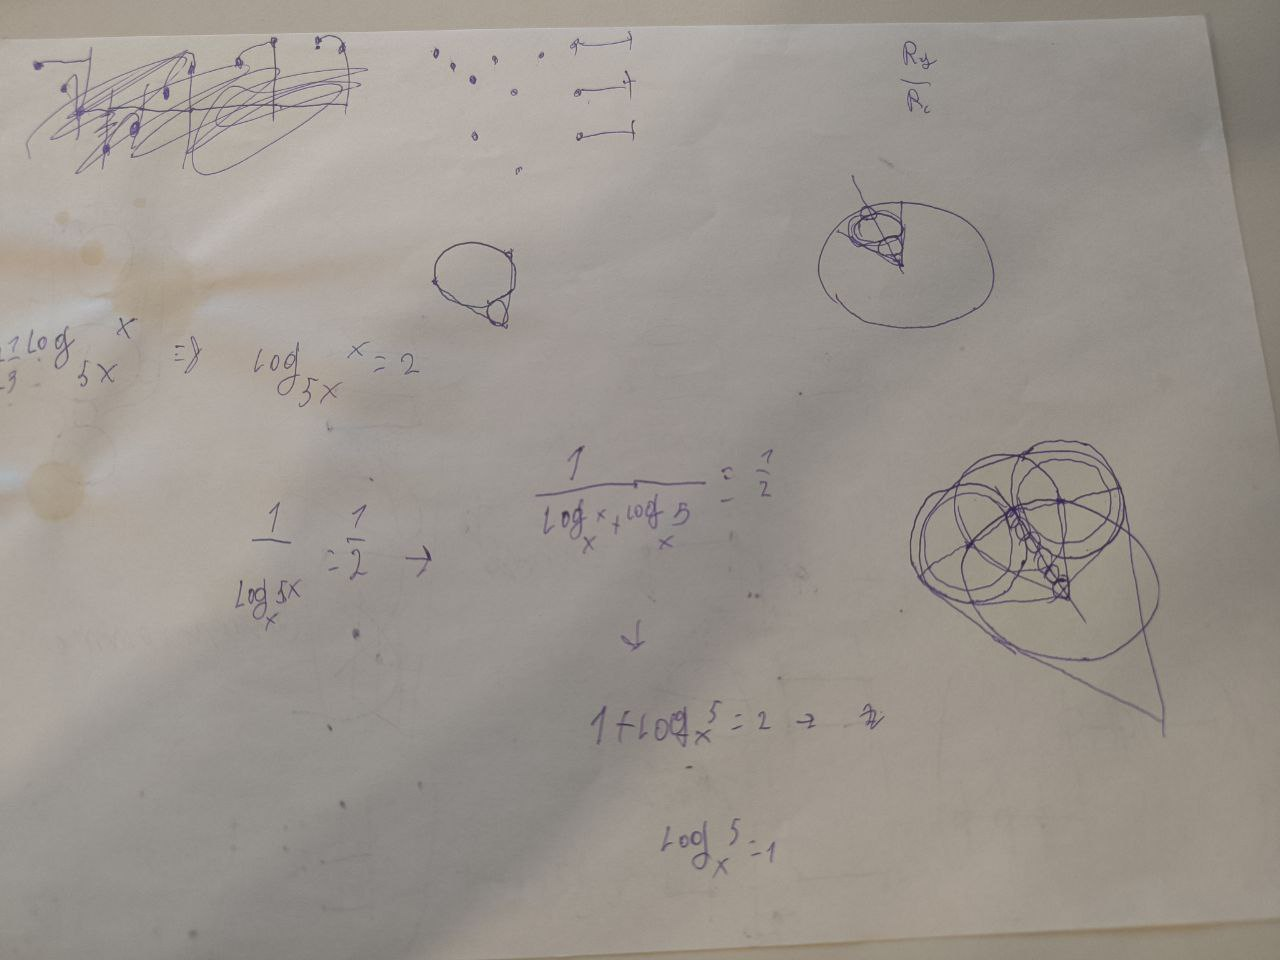 R
R
1/3 log_{5x} x ⇒ log_{5x} x = 2
1/(log_x 5x) = 1/2 →
1/(log_x x + log_x 5) = 1/2
↓
1 + log_x 5 = 2 →
log_x 5 = 1